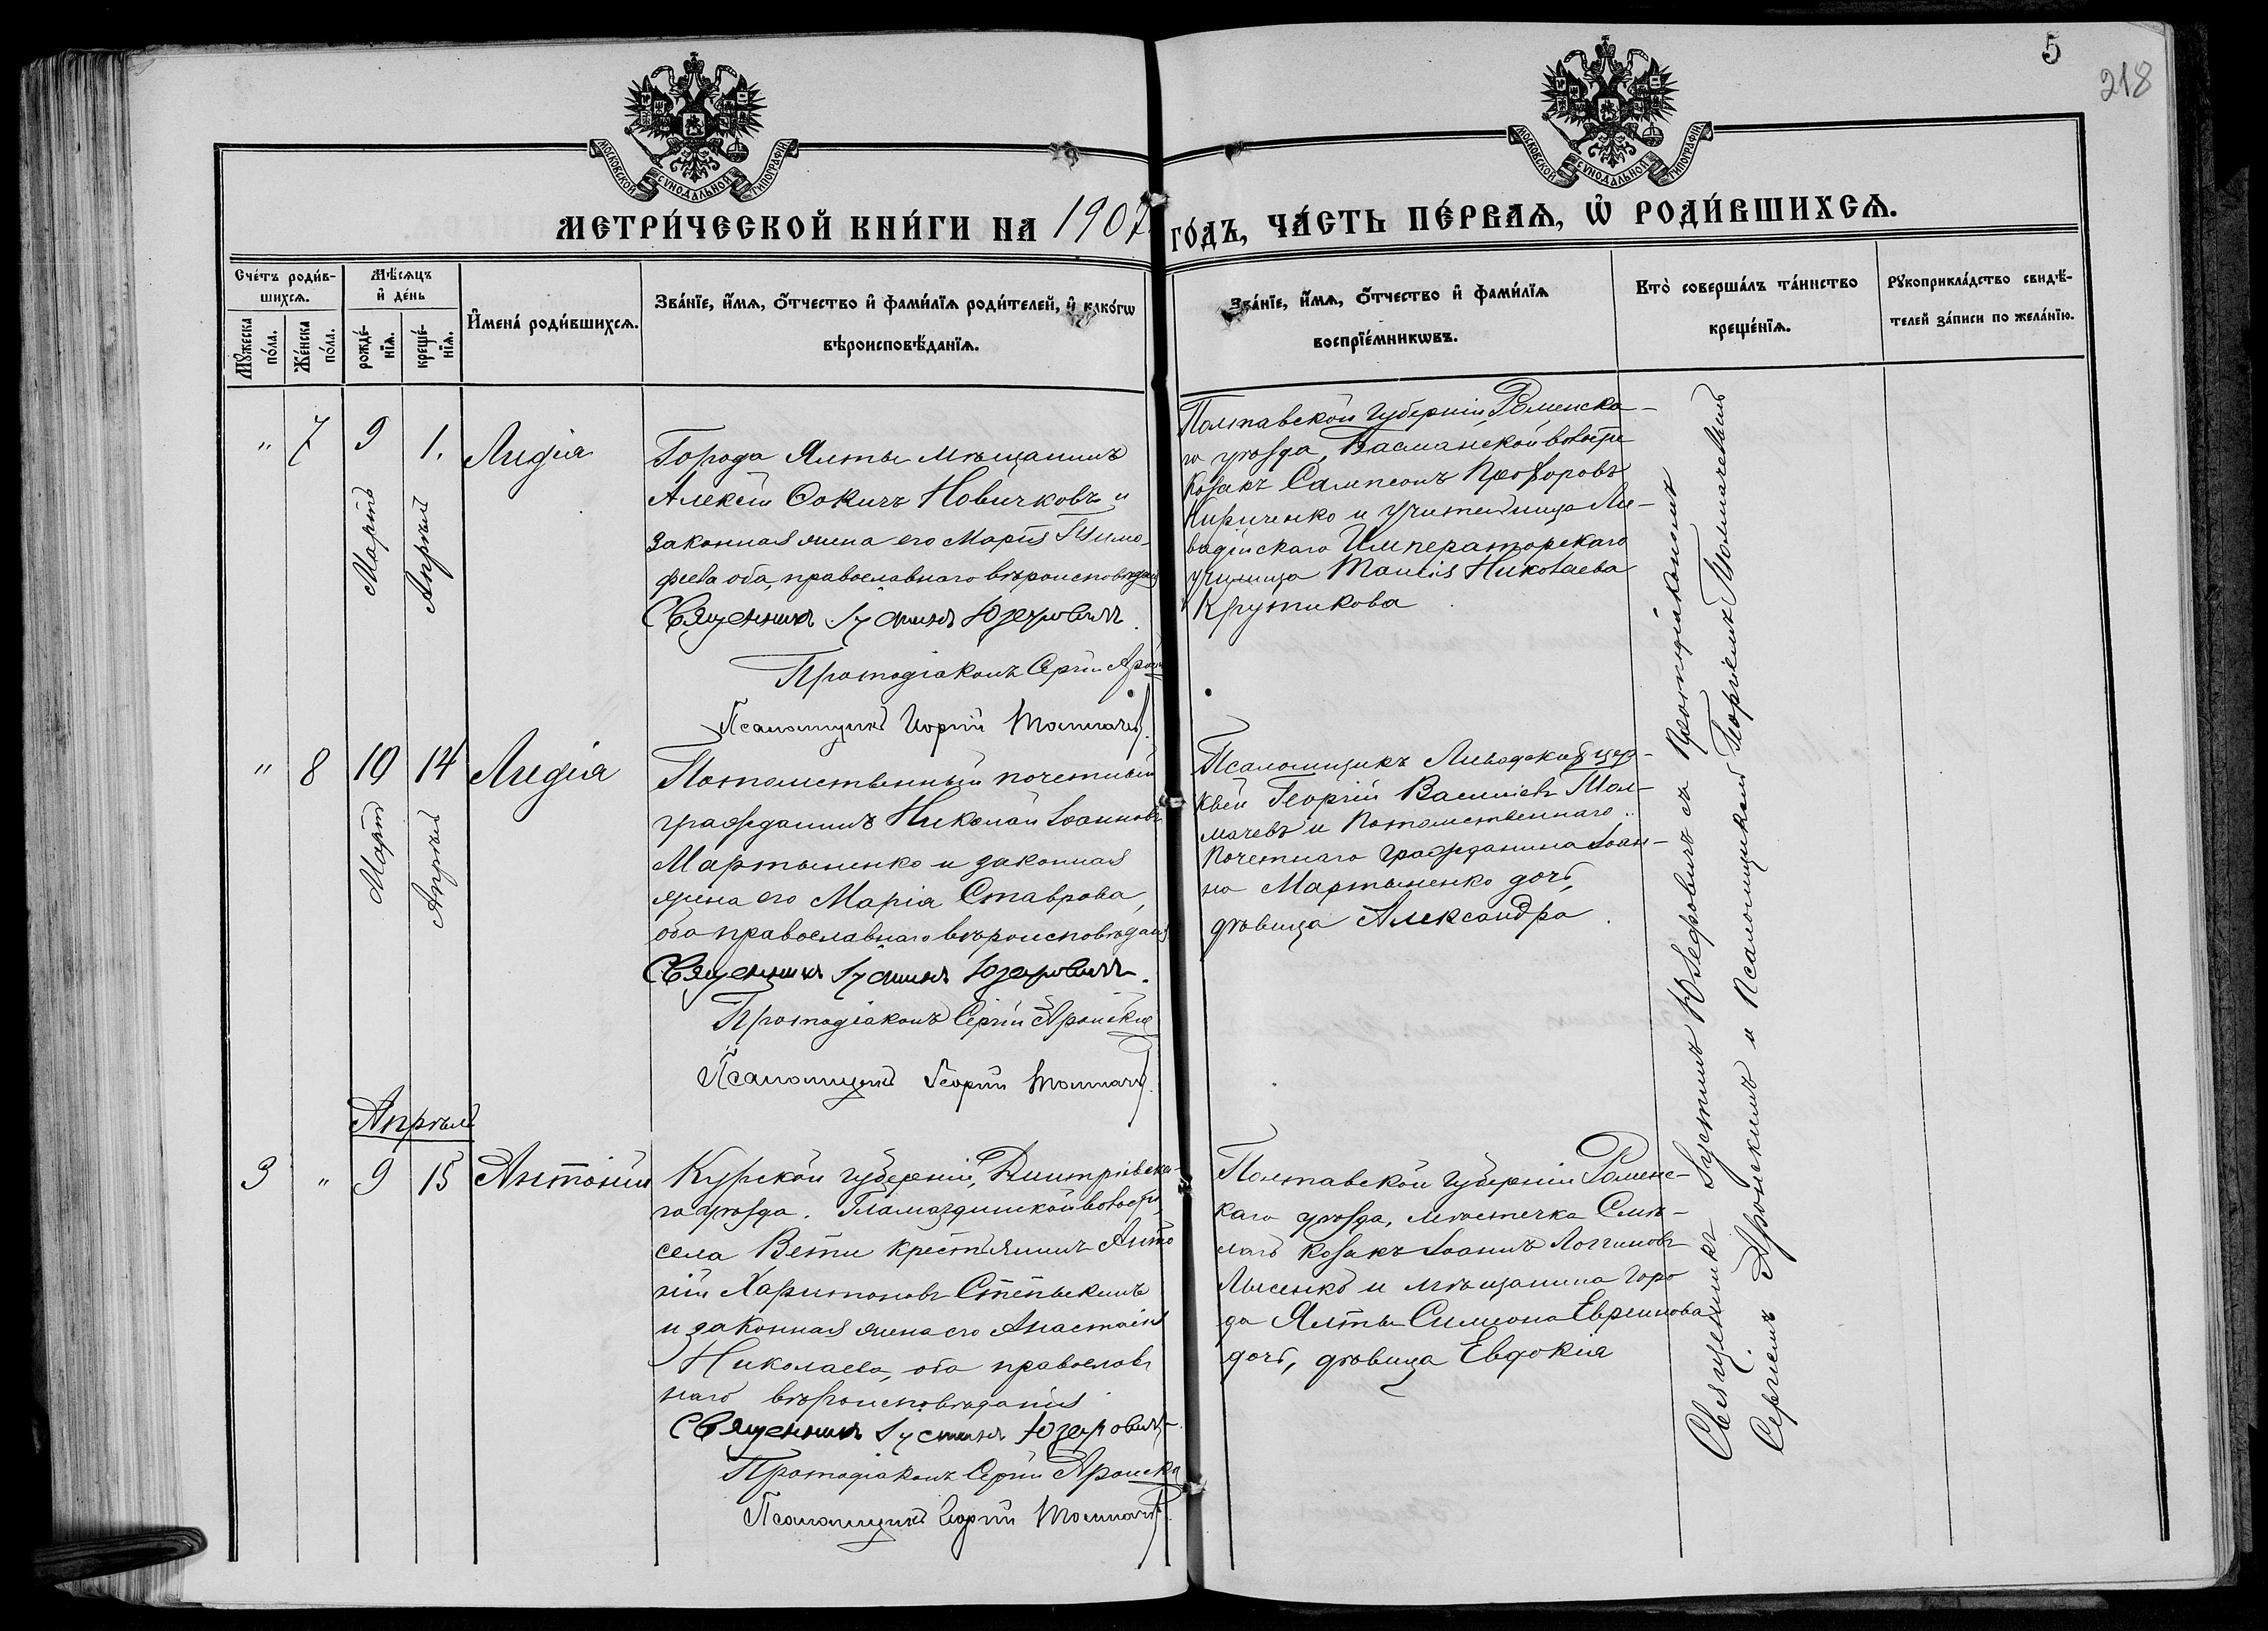 5
218
МОСКОВСКОЙ СУНОДАЛЬНОЙ ТИПОГРАФІИ
МОСКОВСКОЙ СУНОДАЛЬНОЙ ТИПОГРАФІИ
МЕТРИ́ЧЕСКОЙ КНИ́ГИ НА 1907 ГО́ДЪ, ЧА́СТЬ ПЕ́РВАѦ, Ѡ҆ РОДИ́ВШИХСѦ.
Сче́тъ роди́в-
шихсѧ.
Мꙋ́жеска
по́ла.
Же́нска
по́ла.
Мѣ́сѧцъ
и҆ де́нь
рожде́-
нїѧ.
креще́-
нїѧ.
И҆мена̀ роди́вшихсѧ.
Зва́нїе, и҆́мѧ, ѻ҆́тчество и҆ фами́лїѧ роди́телей, и҆ како́гѡ
вѣроисповѣ́данїѧ.
Зва́нїе, и҆́мѧ, ѻ҆́тчество и҆ фами́лїѧ
воспрїе́мникѡвъ.
Кто̀ соверша́лъ та́инство
креще́нїѧ.
Рꙋкоприкла́дство свидѣ́-
телей за́писи по жела́нїю.
" 7 9 1. Лидія
Мартъ
Апрѣля
Города Ялты мѣщанинъ
Алексѣй Фокичъ Новичковъ и
законная жена его Марія Тимо-
феева оба православнаго вѣроисповѣданія
Священникъ Іустинъ Юзефовичъ.
Протодіаконъ Сергій
Псаломщикъ Георгій Толмачевъ.
Полтавской губерніи Роменска-
го уѣзда, Васманской волости
козакъ Сампсонъ Прохоровъ
Кириченко и учительница Ли-
вадійскаго Императорскаго
училища Таисія Николаева
Крутикова.
" 8 10 14 Лидія
Март
Апрѣля
Потомственный почетный
гражданинъ Николай Іоанновъ
Мартыненко и законная
жена его Марія Ставрова,
оба православнаго вѣроисповѣданія
Священникъ Іустинъ Юзефовичъ.
Протодіаконъ Сергій Аронскій
Псаломщикъ Георгій Толмачевъ.
Псаломщикъ Ливадской цер-
квей Георгій Васильевъ Тол-
мачевъ и Потомственнаго
Почетнаго Гражданина Іоан-
на Мартыненко дочь,
дѣвица Александра.
Апрѣля
3 " 9 15 Антоній
Курской губерніи, Дмитріевска-
го уѣзда. Гламаздинской волости,
села Вети крестьянинъ Анто
ній Харитоновъ
и законная жена его Анастасія
Николаева, оба православ
наго вѣроисповѣданія
Священникъ Іустинъ Юзефовичъ.
Протодіаконъ Сергій Аронскій
Псаломщикъ Георгій Толмачевъ.
Полтавской губерніи Роменс-
каго уѣзда, мѣстечка Смѣ-
лаго козакъ Іоаннъ Логгиновъ
Лысенко и мѣщанина горо
да Ялты Симеона Евреинова
дочь, дѣвица Евфокія
Священникъ Іустинъ Юзефовичъ съ Протодіакономъ
Сергіемъ Аронскимъ и Псаломщикомъ Георгіемъ Толмачевымъ